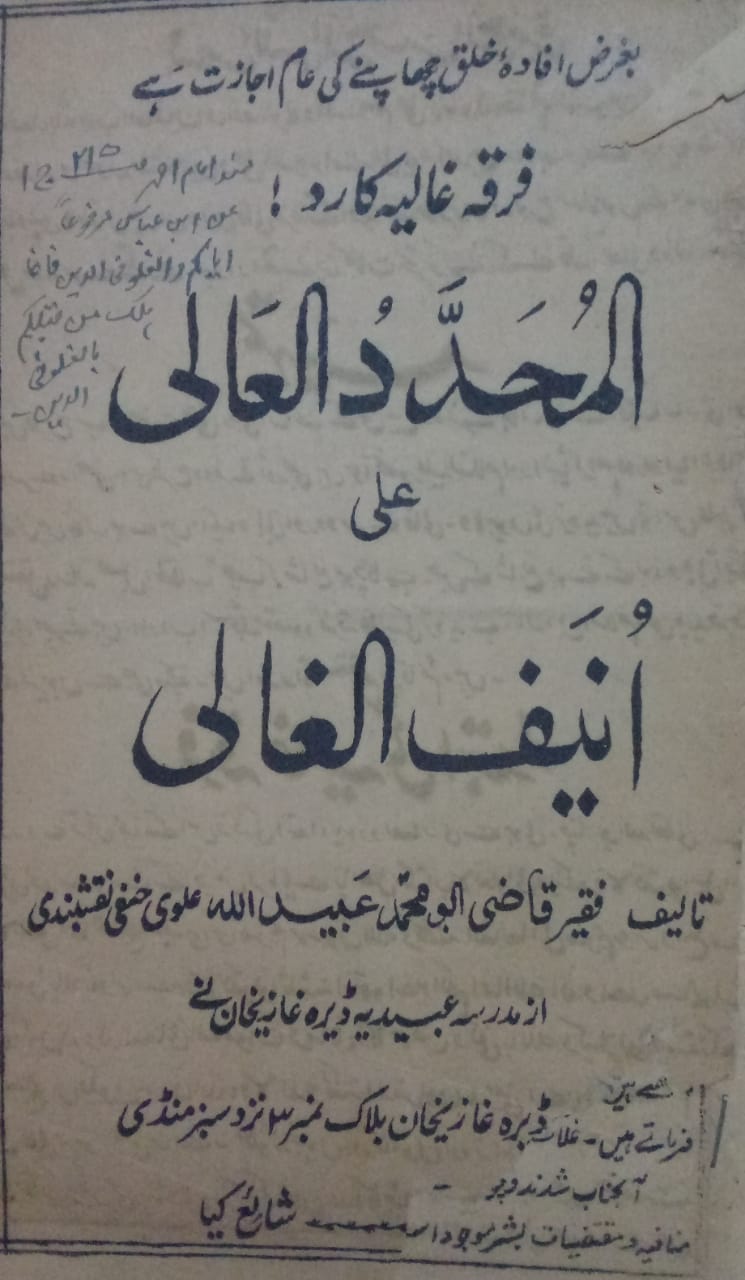 بغرض افادۂ خلق چھاپنے کی عام اجازت ہے
فرقہ غالیہ کا رد !
مسند امام احمد ص ۲۱۵ ج 1
عن ابن عباس مرفوعاً
ایاکم والغلو فی الدین فانما
ہلک من قبلکم
بالغلو فی
الدین۔
المُحَدَّدُ العَالی
علی
اُنَیف الغالی
تالیف فقیر قاضی ابو محمد عَبید اللہ علوی حنفی نقشبندی
از مدرسہ عبیدیہ ڈیرہ غازیخان نے
سے ہیں
فرماتے ہیں۔ ڈیرہ غازیخان بلاک نمبر ۳ نزد سبز منڈی
آنجناب شدند و جو -
منافیہ و مقتضیات بشر موجود شائع کیا